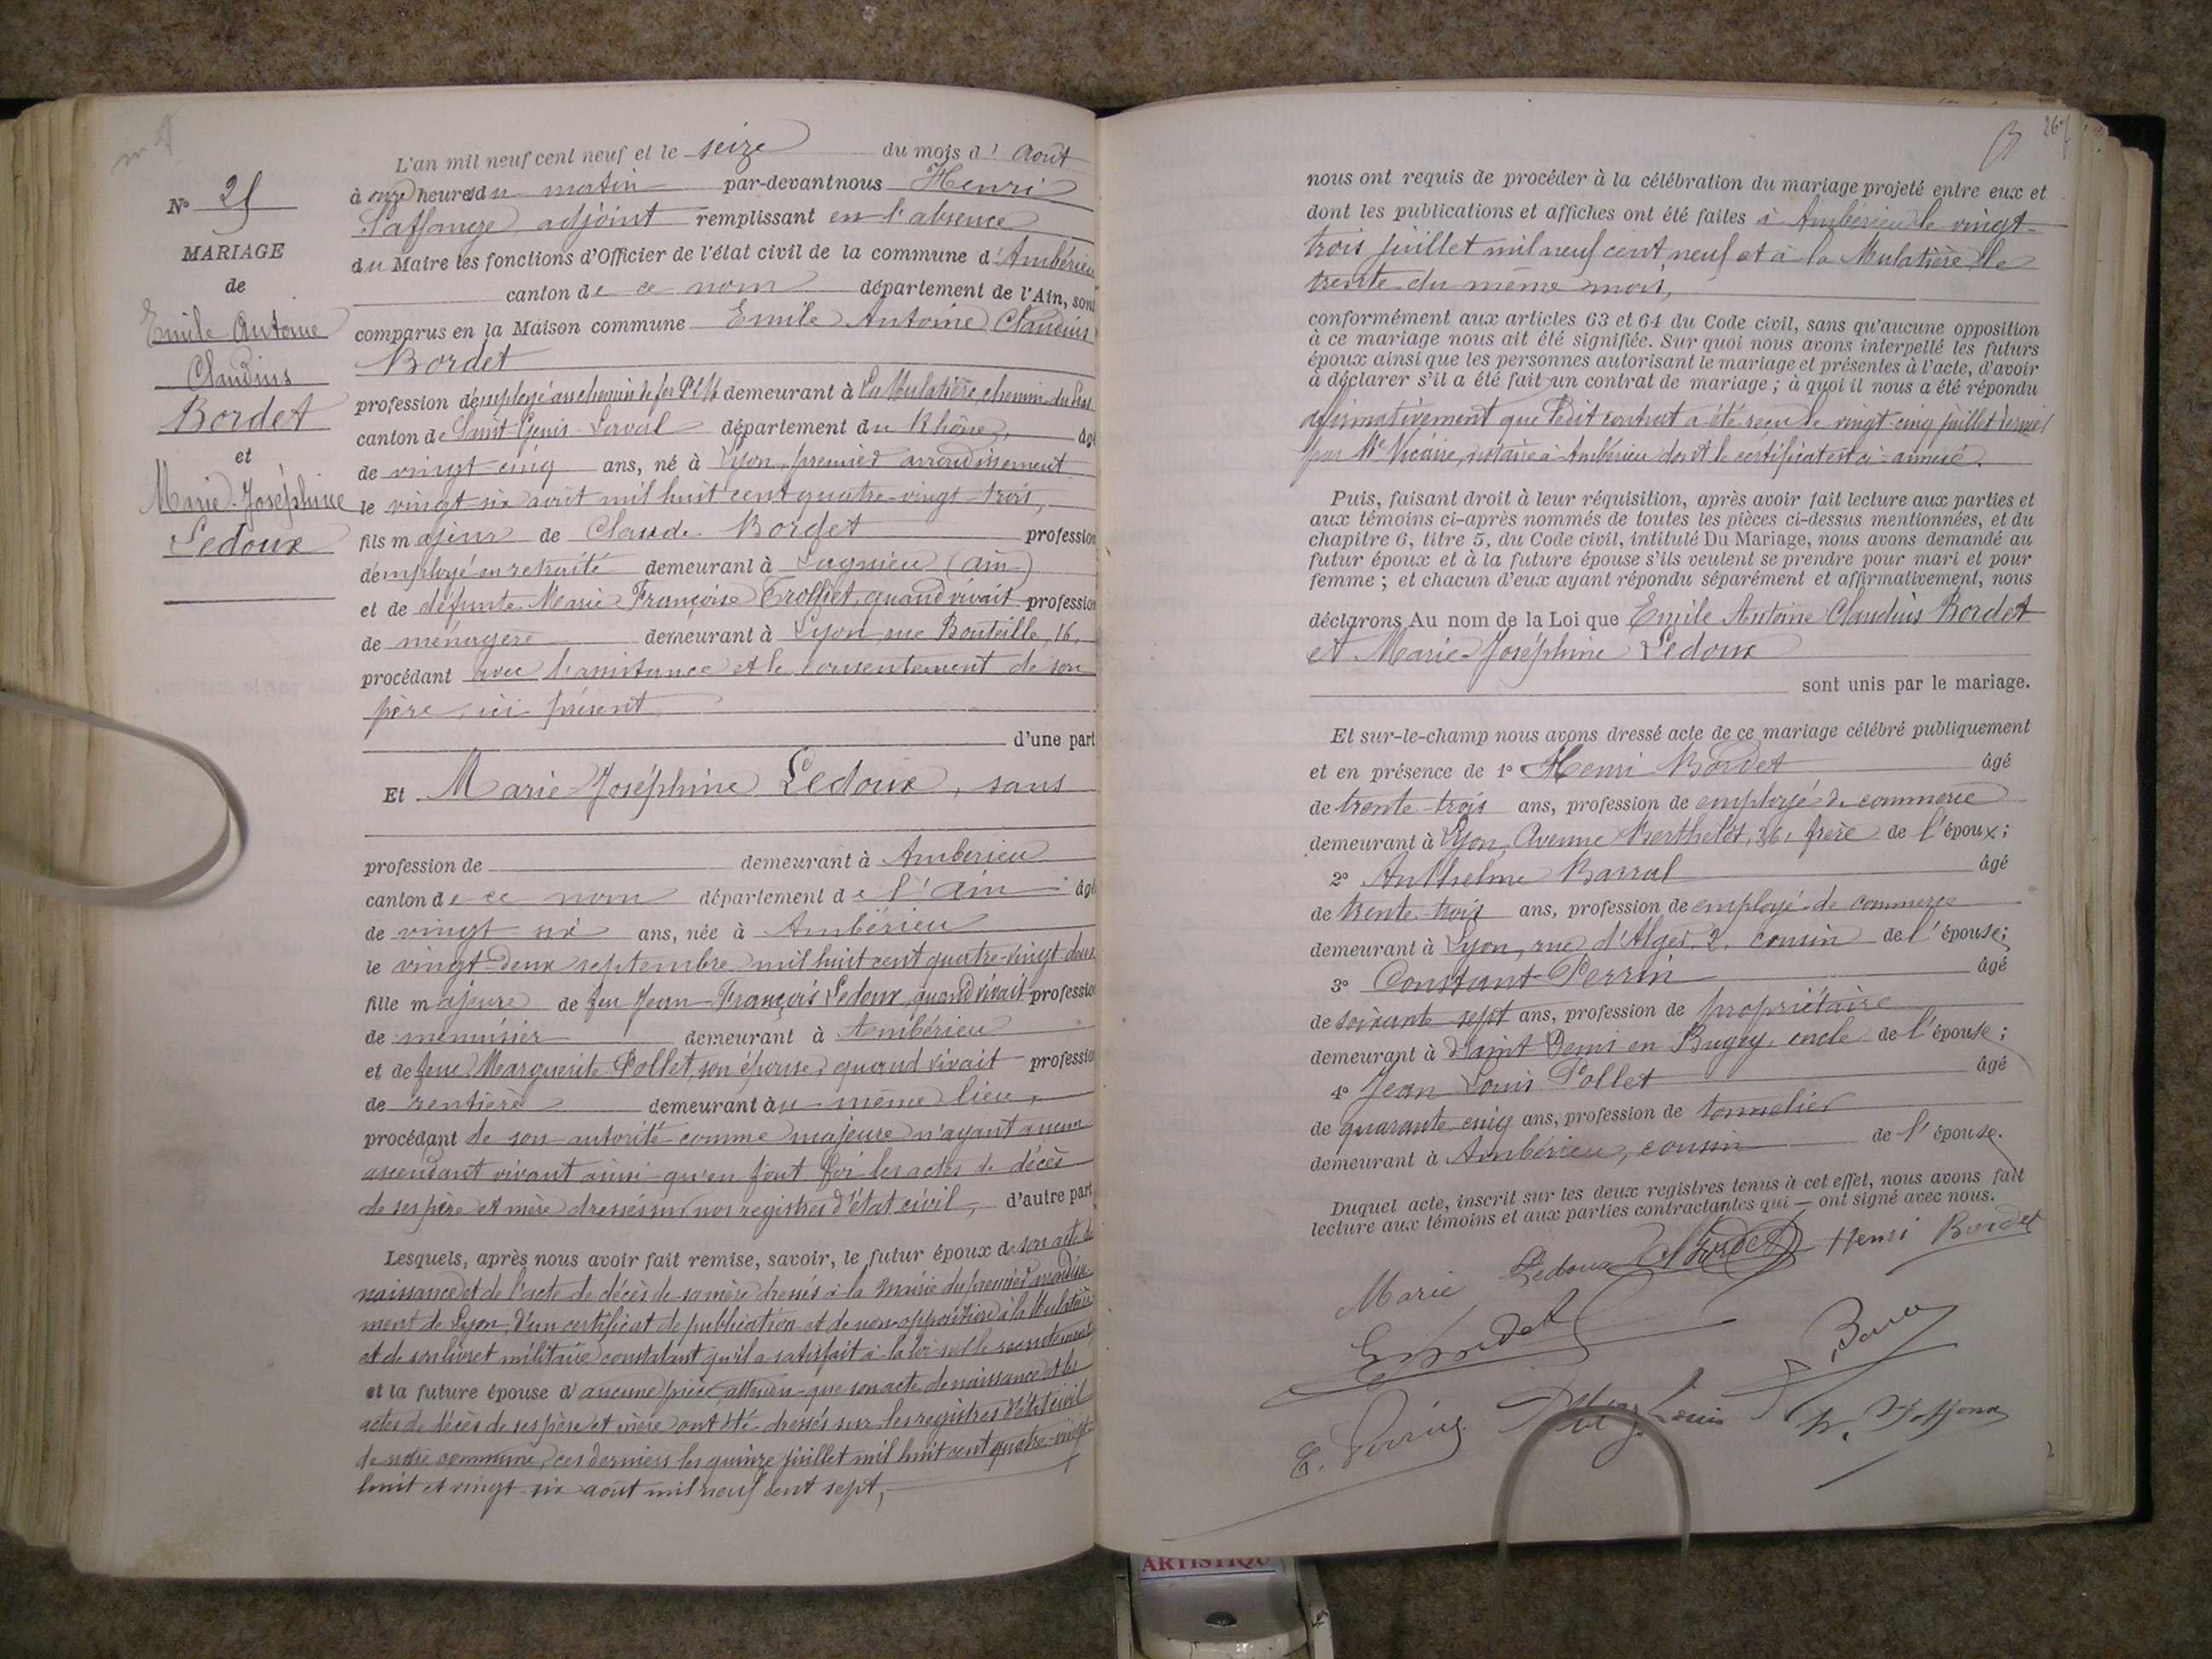 N° 25
MARIAGE
de
Emile Antoine
Claudius
Bordet
et
Marie-Joséphine
Ledoux
L'an mil neuf cent neuf et le seize du mois d' Août
à onze heures du matin par-devant nous Henri
Laffange adjoint remplissant en l'absence
du Maire les fonctions d'Officier de l'état civil de la commune d'Ambérieu
canton de ce nom département de l'Ain, sont
comparus en la Maison commune Emile Antoine Claudius
Bordet
profession d'employé au chemin de fer PLM demeurant à La Mulatière, chemin du
canton de Saint-Genis-Laval département du Rhône, âgé
de vingt-cinq ans, né à Lyon, premier arrondissement
le vingt-six août mil huit cent quatre-vingt-trois,
fils majeur de Claude Bordet profession
d'employé en retraite demeurant à Lagnieu (Ain)
et de défunte Marie Françoise Trolliet, quand vivait profession
de ménagère demeurant à Lyon rue Bouteille, 16,
procédant avec l'assistance et le consentement de son
père, ici présent
d'une part
Et Marie-Joséphine Ledoux, sans
profession de demeurant à Ambérieu
canton de ce nom département de l'Ain âgé
de vingt-six ans, née à Ambérieu
le vingt-deux septembre mil huit cent quatre-vingt-deux
fille majeure de feu Jean-François Ledoux, quand vivait profession
de menuisier demeurant à Ambérieu
et de feue Marguerite Pollet, son épouse, quand vivait profession
de rentière demeurant au même lieu,
procédant de son autorité comme majeure n'ayant aucun
ascendant vivant ainsi qu'en font foi les actes de décès
de ses père et mère dressés sur nos registres d'état civil, d'autre part
Lesquels, après nous avoir fait remise, savoir, le futur époux de son acte de
naissance et de l'acte de décès de sa mère dressés à la Mairie du premier arrondisse-
ment de Lyon, d'un certificat de publication et de non-opposition à la Mulatière
et de son livret militaire constatant qu'il a satisfait à la loi sur le recrutement
et la future épouse d'aucune pièce, attendu que son acte de naissance et les
actes de décès de ses père et mère ont été dressés sur les registres d'état civil
de notre commune, ces derniers les quinze juillet mil huit cent quatre-vingt-
huit et vingt-six août mil neuf cent sept,
267
nous ont requis de procéder à la célébration du mariage projeté entre eux et
dont les publications et affiches ont été faites à Ambérieu le vingt-
trois juillet mil neuf cent neuf et à la Mulatière, le
trente du même mois,
conformément aux articles 63 et 64 du Code civil, sans qu'aucune opposition
à ce mariage nous ait été signifiée. Sur quoi nous avons interpellé les futurs
époux ainsi que les personnes autorisant le mariage et présentes à l'acte, d'avoir
à déclarer s'il a été fait un contrat de mariage ; à quoi il nous a été répondu
affirmativement que ledit contrat a été reçu le vingt-cinq juillet dernier
par Me Vicaire, notaire à Ambérieu dont le certificat est ci-annexé.
Puis, faisant droit à leur réquisition, après avoir fait lecture aux parties et
aux témoins ci-après nommés de toutes les pièces ci-dessus mentionnées, et du
chapitre 6, titre 5, du Code civil, intitulé Du Mariage, nous avons demandé au
futur époux et à la future épouse s'ils veulent se prendre pour mari et pour
femme ; et chacun d'eux ayant répondu séparément et affirmativement, nous
déclarons Au nom de la Loi que Emile Antoine Claudius Bordet
et Marie-Joséphine Ledoux
sont unis par le mariage.
Et sur-le-champ nous avons dressé acte de ce mariage célébré publiquement
et en présence de 1° Henri Bordet âgé
de trente-trois ans, profession de employé de commerce
demeurant à Lyon, Avenue Berthelot, 36, frère de l'époux ;
2° Anthelme Barral âgé
de trente-trois ans, profession de employé de commerce
demeurant à Lyon, rue d'Alger, 2, cousin de l'épouse ;
3° Constant Perrin âgé
de soixante-sept ans, profession de propriétaire
demeurant à Saint Denis en Bugey, oncle de l'épouse ;
4° Jean Louis Pollet âgé
de quarante-cinq ans, profession de tonnelier
demeurant à Ambérieu, cousin de l'épouse.
Duquel acte, inscrit sur les deux registres tenus à cet effet, nous avons fait
lecture aux témoins et aux parties contractantes qui — ont signé avec nous.
Marie Ledoux Bordet Henri Bordet
E Bordet
Perrin Louis
ARTISTIQU